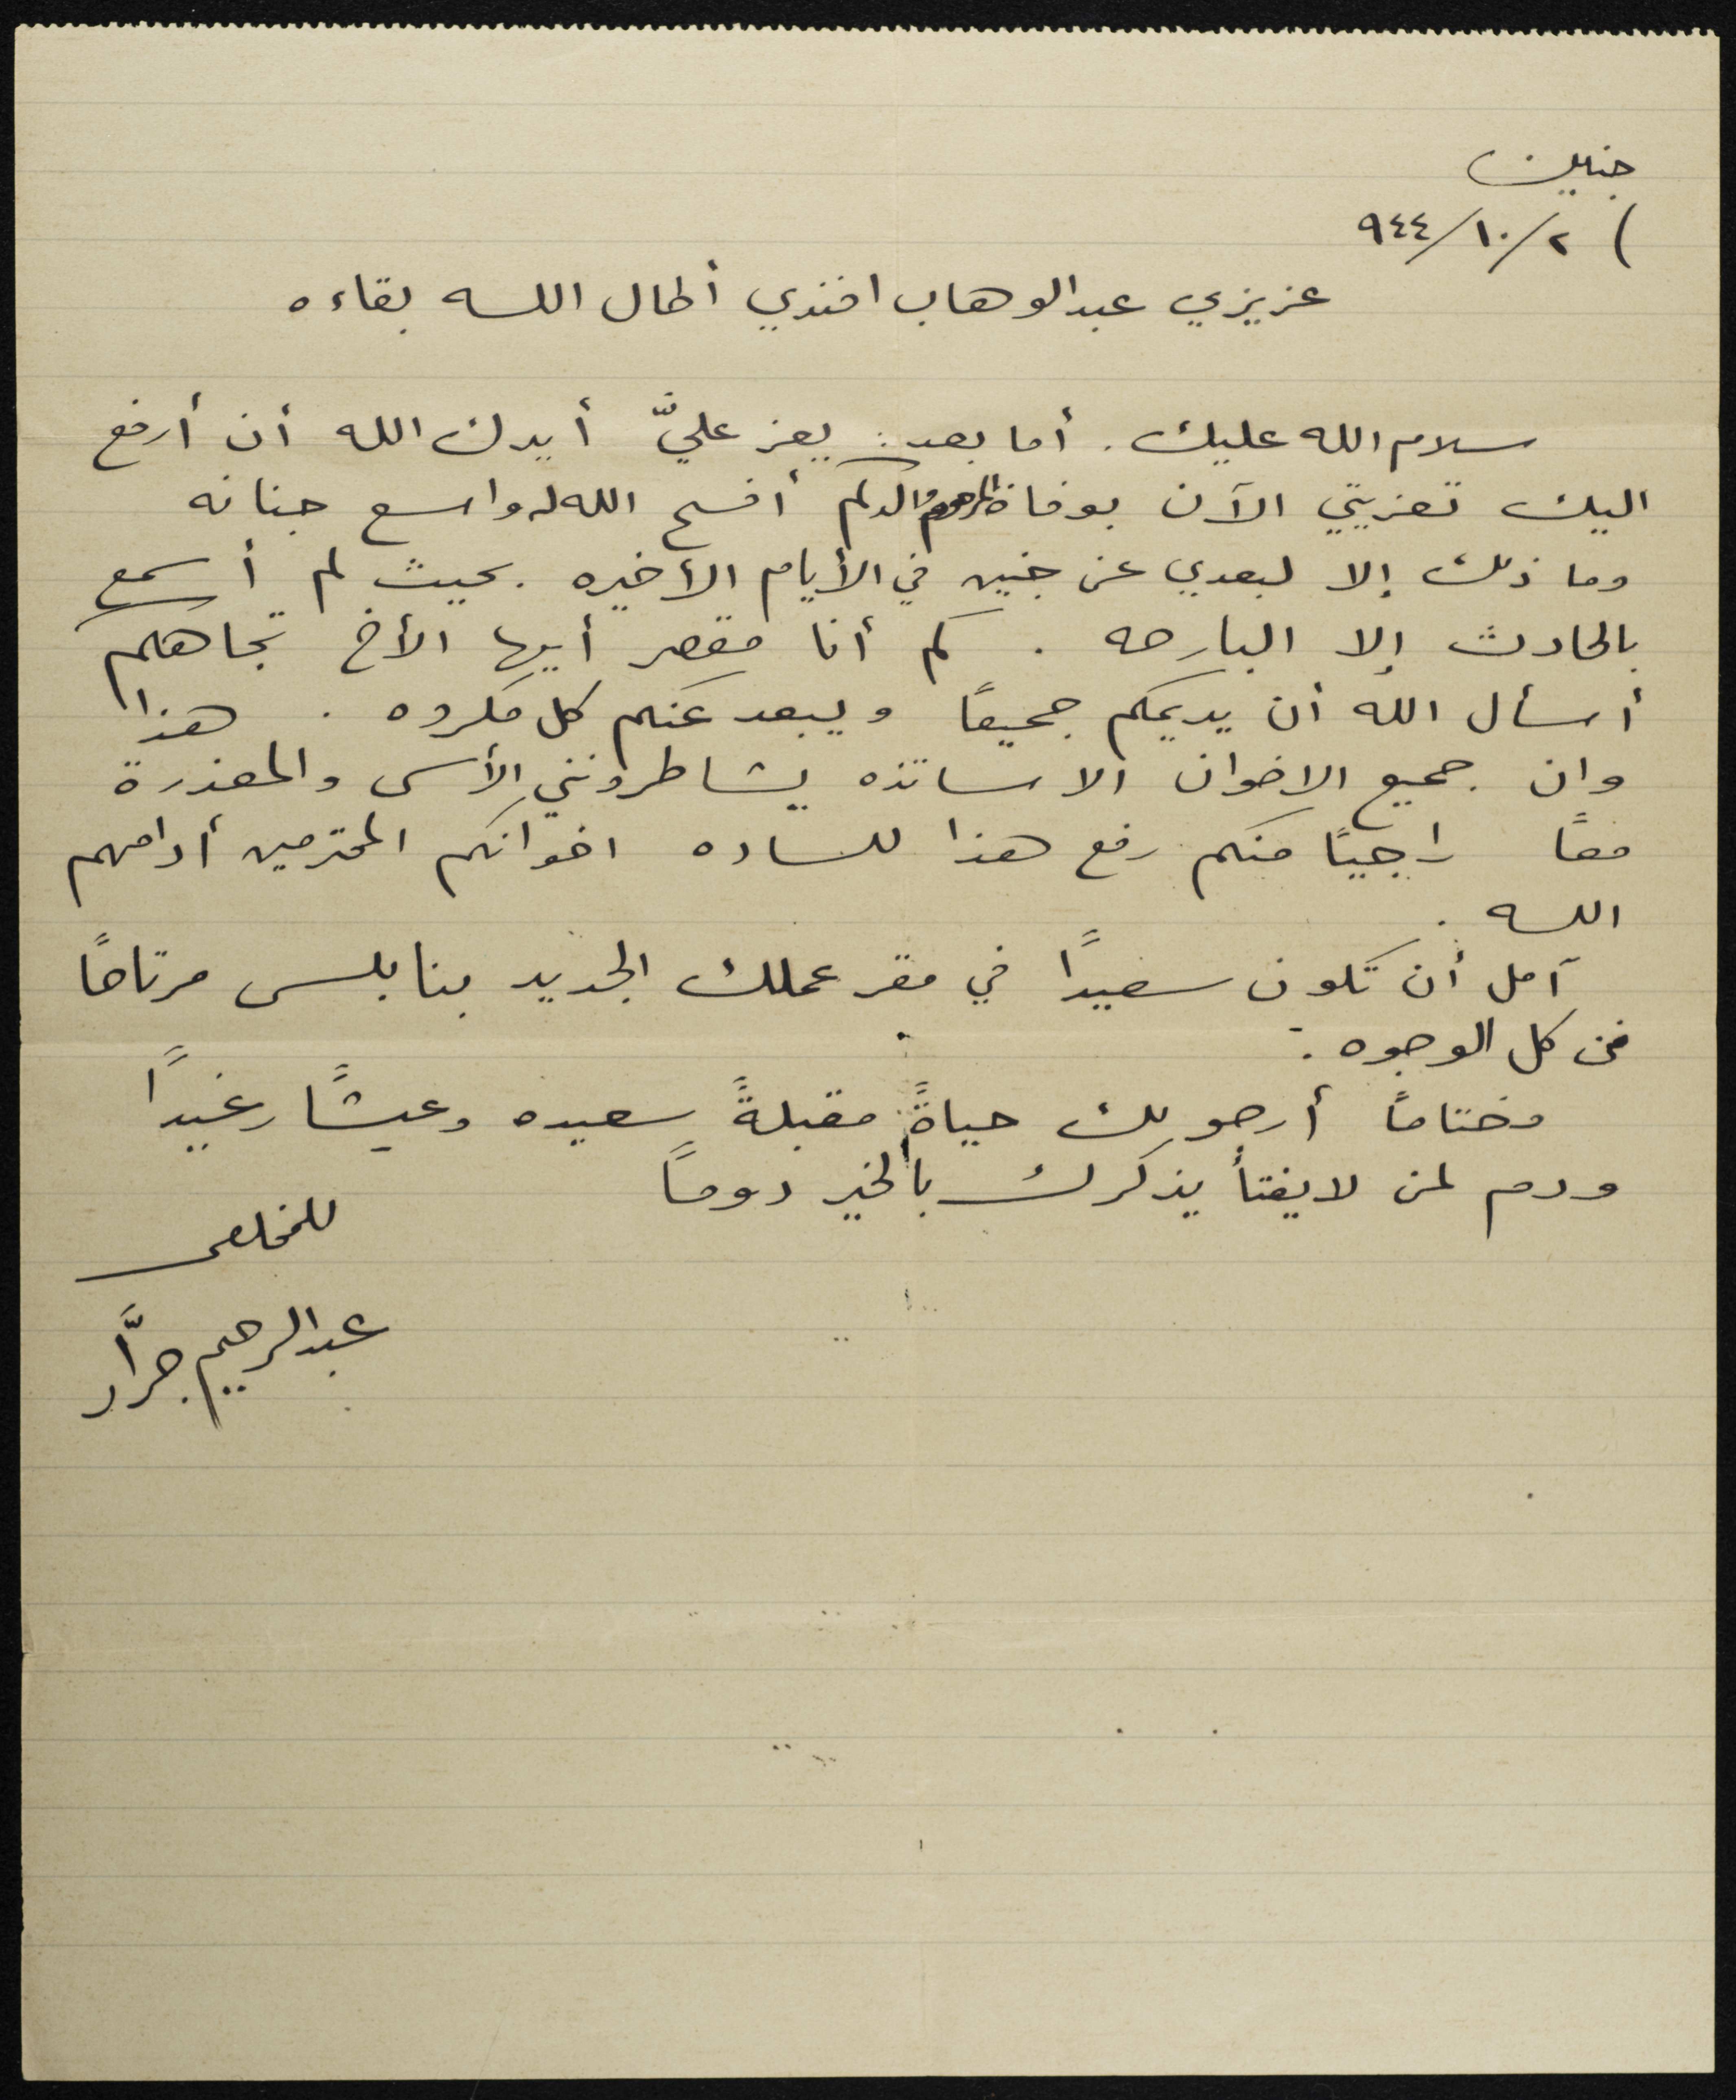 جنين
٢/١٠/٩٤٤
عزيزي عبدالوهاب افندي أطال اللــه بقاءه
سلام الله عليك. أما بعد: يعز عليَّ أيدك الله أن أرفع
اليك تعزيتي الآن بوفاة المرحوم والدكم أفسح الله له واسع جنانه
وما ذلك إلا لبعدي عن جنين في الأيام الأخيره. بحيث لم أسمع
بالحادث إلا البارحه. كم أنا مقصر أيها الأخ تجاهكم
أسأل الله أن يديمكم جميعًا ويبعد عنكم كل مكروه. هذا
وان جميع الاخوان الاساتذه يشاطرونني الأسى والمعذرة
معًا راجيًا منكم رفع هذا للساده اخوانكم المحترمين أدامهم
اللــه.
آمل أن تكون سعيدًا في مقر عملك الجديد بنابلس مرتاحًا
من كل الوجوه.
وختامًا أرجو لك حياةً مقبلةً سعيده وعيشًا رغيدًا
ودم لمن لا يفتأ يذكرك بالخير دومًا
للمخلص
عبدالرحيم جرَّار